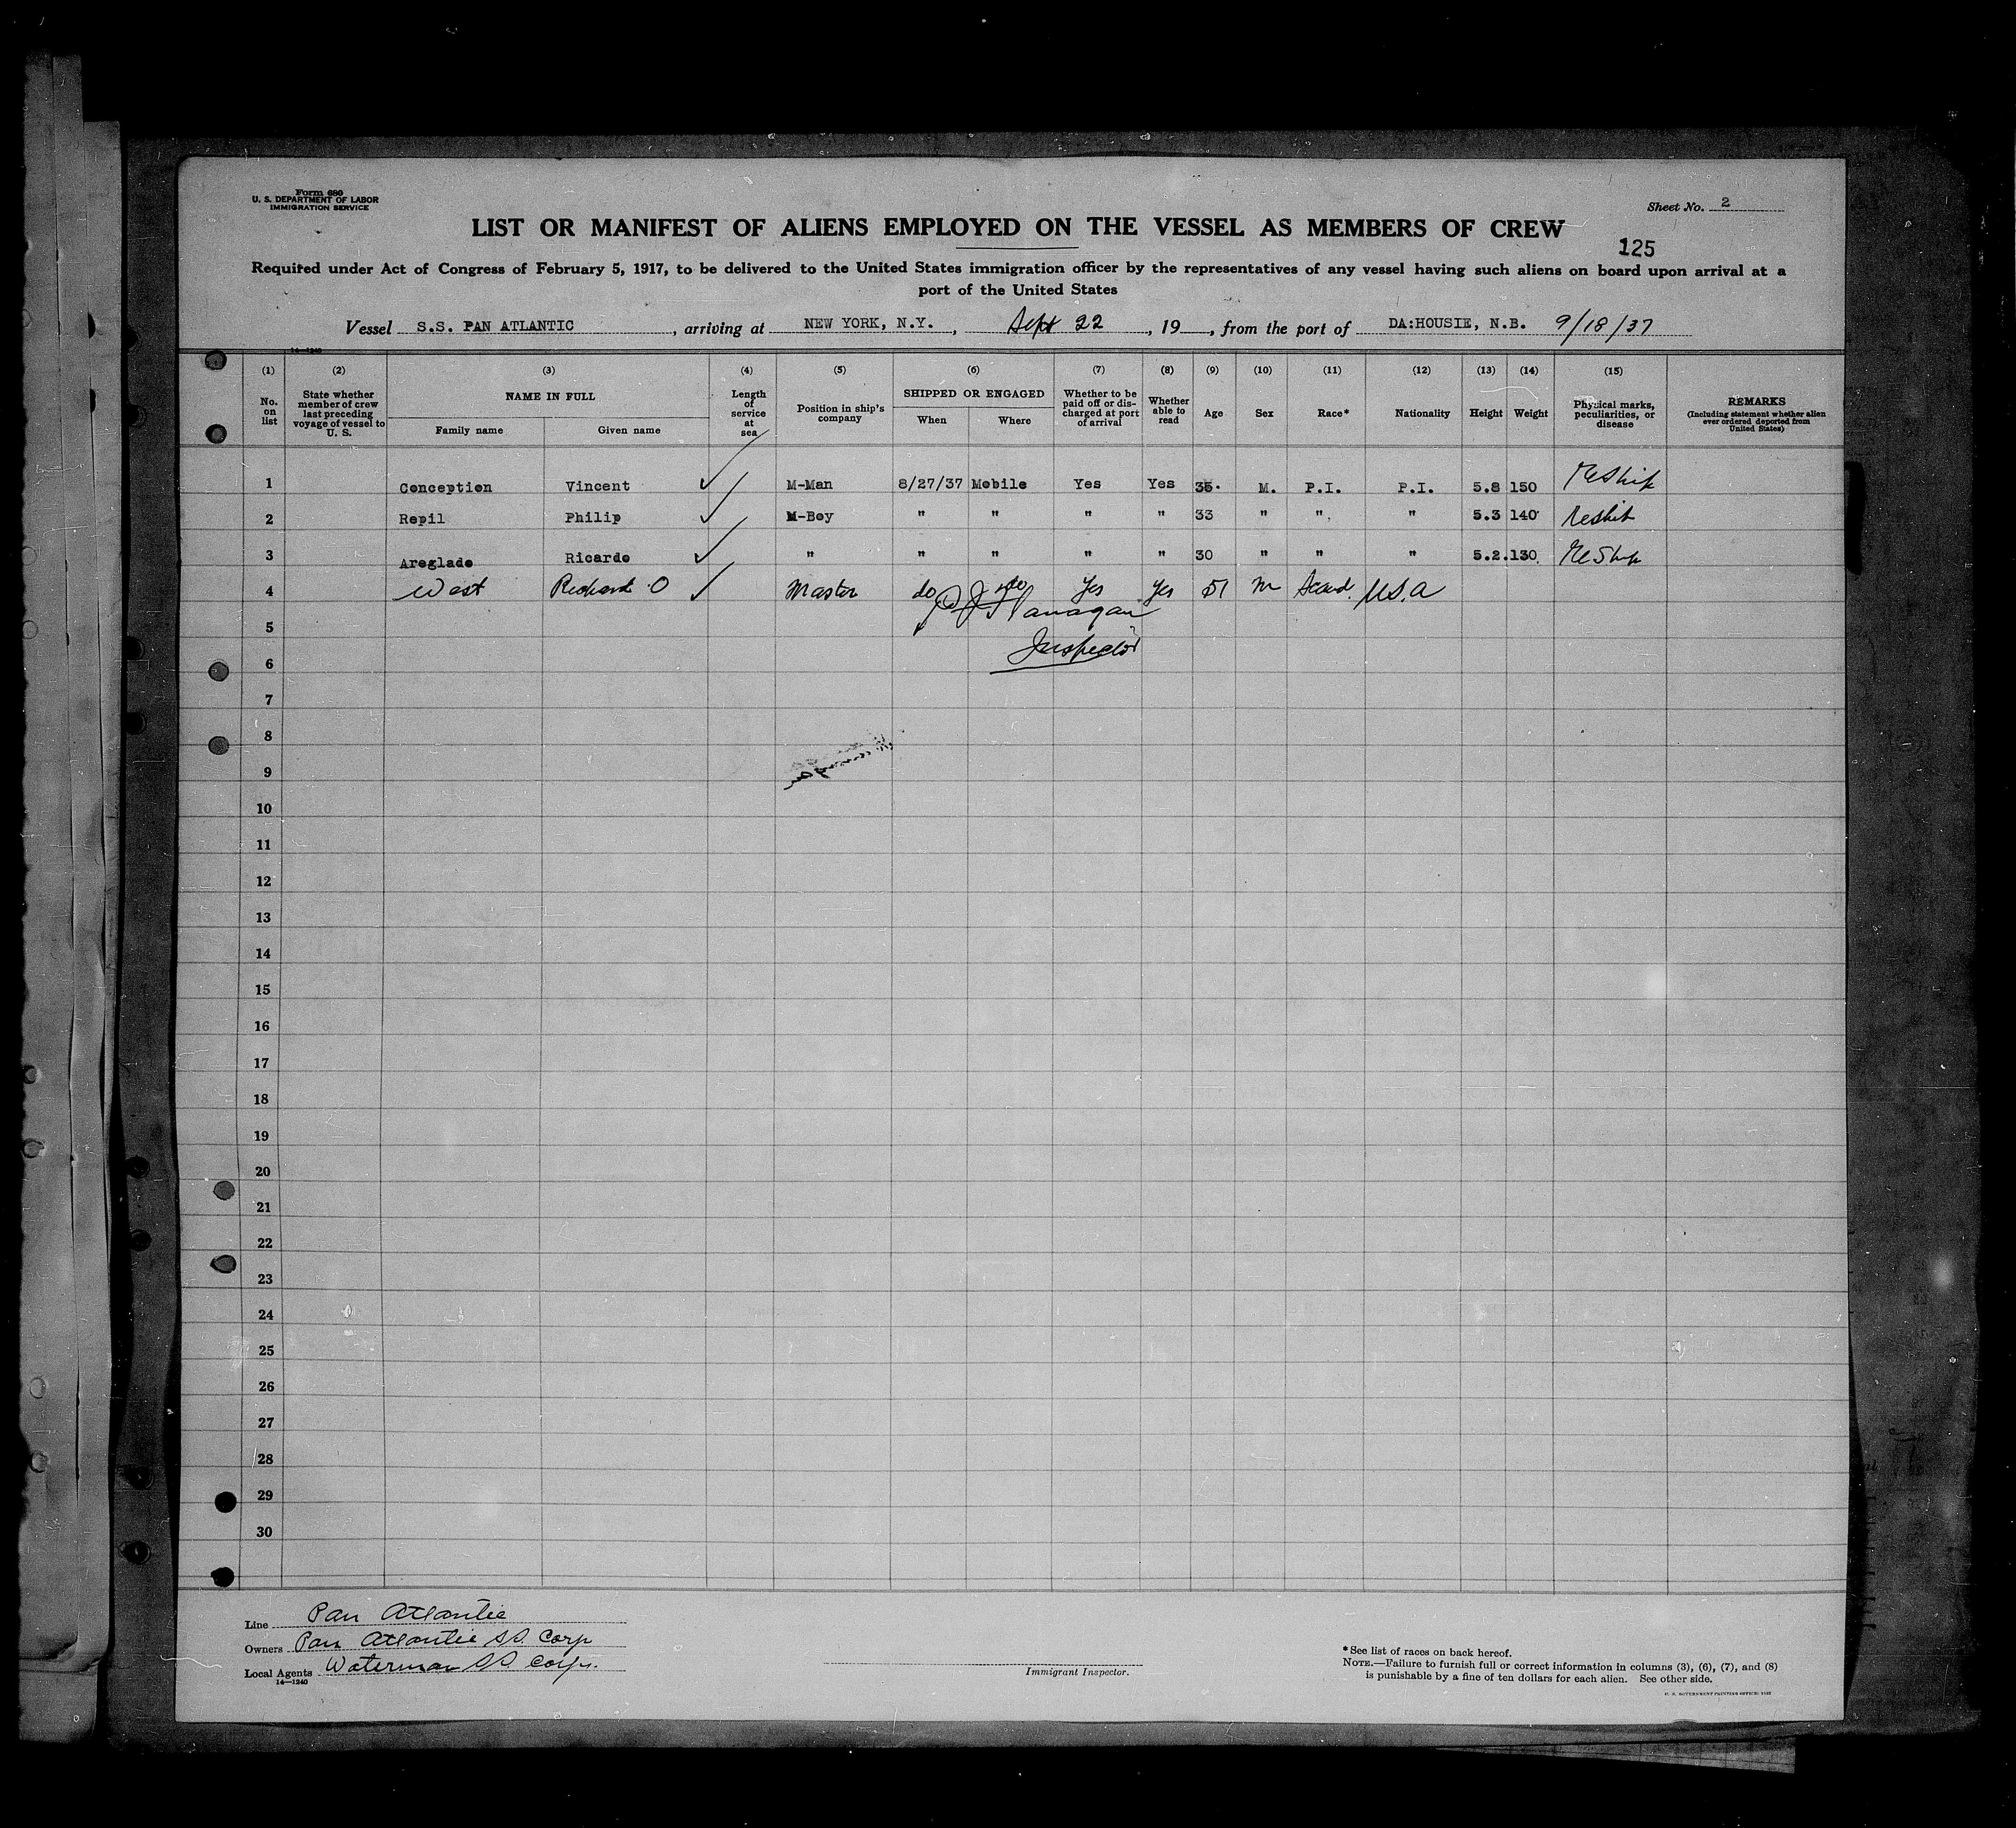 Form 680
U. S. DEPARTMENT OF LABOR
IMMIGRATION SERVICE
Sheet No. 2
LIST OR MANIFEST OF ALIENS EMPLOYED ON THE VESSEL AS MEMBERS OF CREW
125
Required under Act of Congress of February 5, 1917, to be delivered to the United States immigration officer by the representatives of any vessel having such aliens on board upon arrival at a
port of the United States
Vessel S.S. PAN ATLANTIC, arriving at NEW YORK, N.Y., Sept 22, 19, from the port of DA:HOUSIE, N.B. 9/18/37
14—1240
(1) (2) (3) (4) (5) (6) (7) (8) (9) (10) (11) (12) (13) (14) (15)
No. on list
State whether member of crew last preceding voyage of vessel to U. S.
NAME IN FULL
Family name
Given name
Length of service at sea
Position in ship's company
SHIPPED OR ENGAGED
When
Where
Whether to be paid off or discharged at port of arrival
Whether able to read
Age
Sex
Race*
Nationality
Height
Weight
Physical marks, peculiarities, or disease
REMARKS
(Including statement whether alien ever ordered deported from United States)
1 Conception Vincent ✓ M-Man 8/27/37 Mobile Yes Yes 35. M. P.I. P.I. 5.8 150 Reship
2 Repil Philip ✓ M-Boy " " " " 33 " " " 5.3 140 Reship
3 Areglado Ricardo ✓ " " " " " 30 " " " 5.2. 130. Reship
4 West Richard O ✓ Master do do Yes Yes 51 M Scand. U.S.A
5 P J Flanagan
6 Inspector
7
8
9
10
11
12
13
14
15
16
17
18
19
20
21
22
23
24
25
26
27
28
29
30
Line Pan Atlantic
Owners Pan Atlantic SS. Corp
Local Agents Waterman SS Corp.
14—1240
Immigrant Inspector.
*See list of races on back hereof.
NOTE.—Failure to furnish full or correct information in columns (3), (6), (7), and (8)
is punishable by a fine of ten dollars for each alien. See other side.